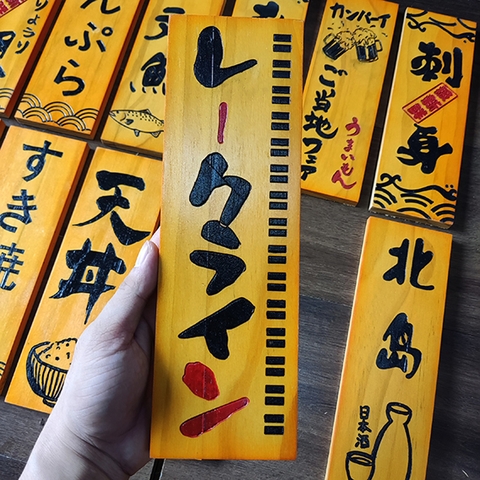 レークライン
んぷら
カンパーイ
ご当地フェア
うまいもん
刺身
すき焼
天丼
北島
日本酒